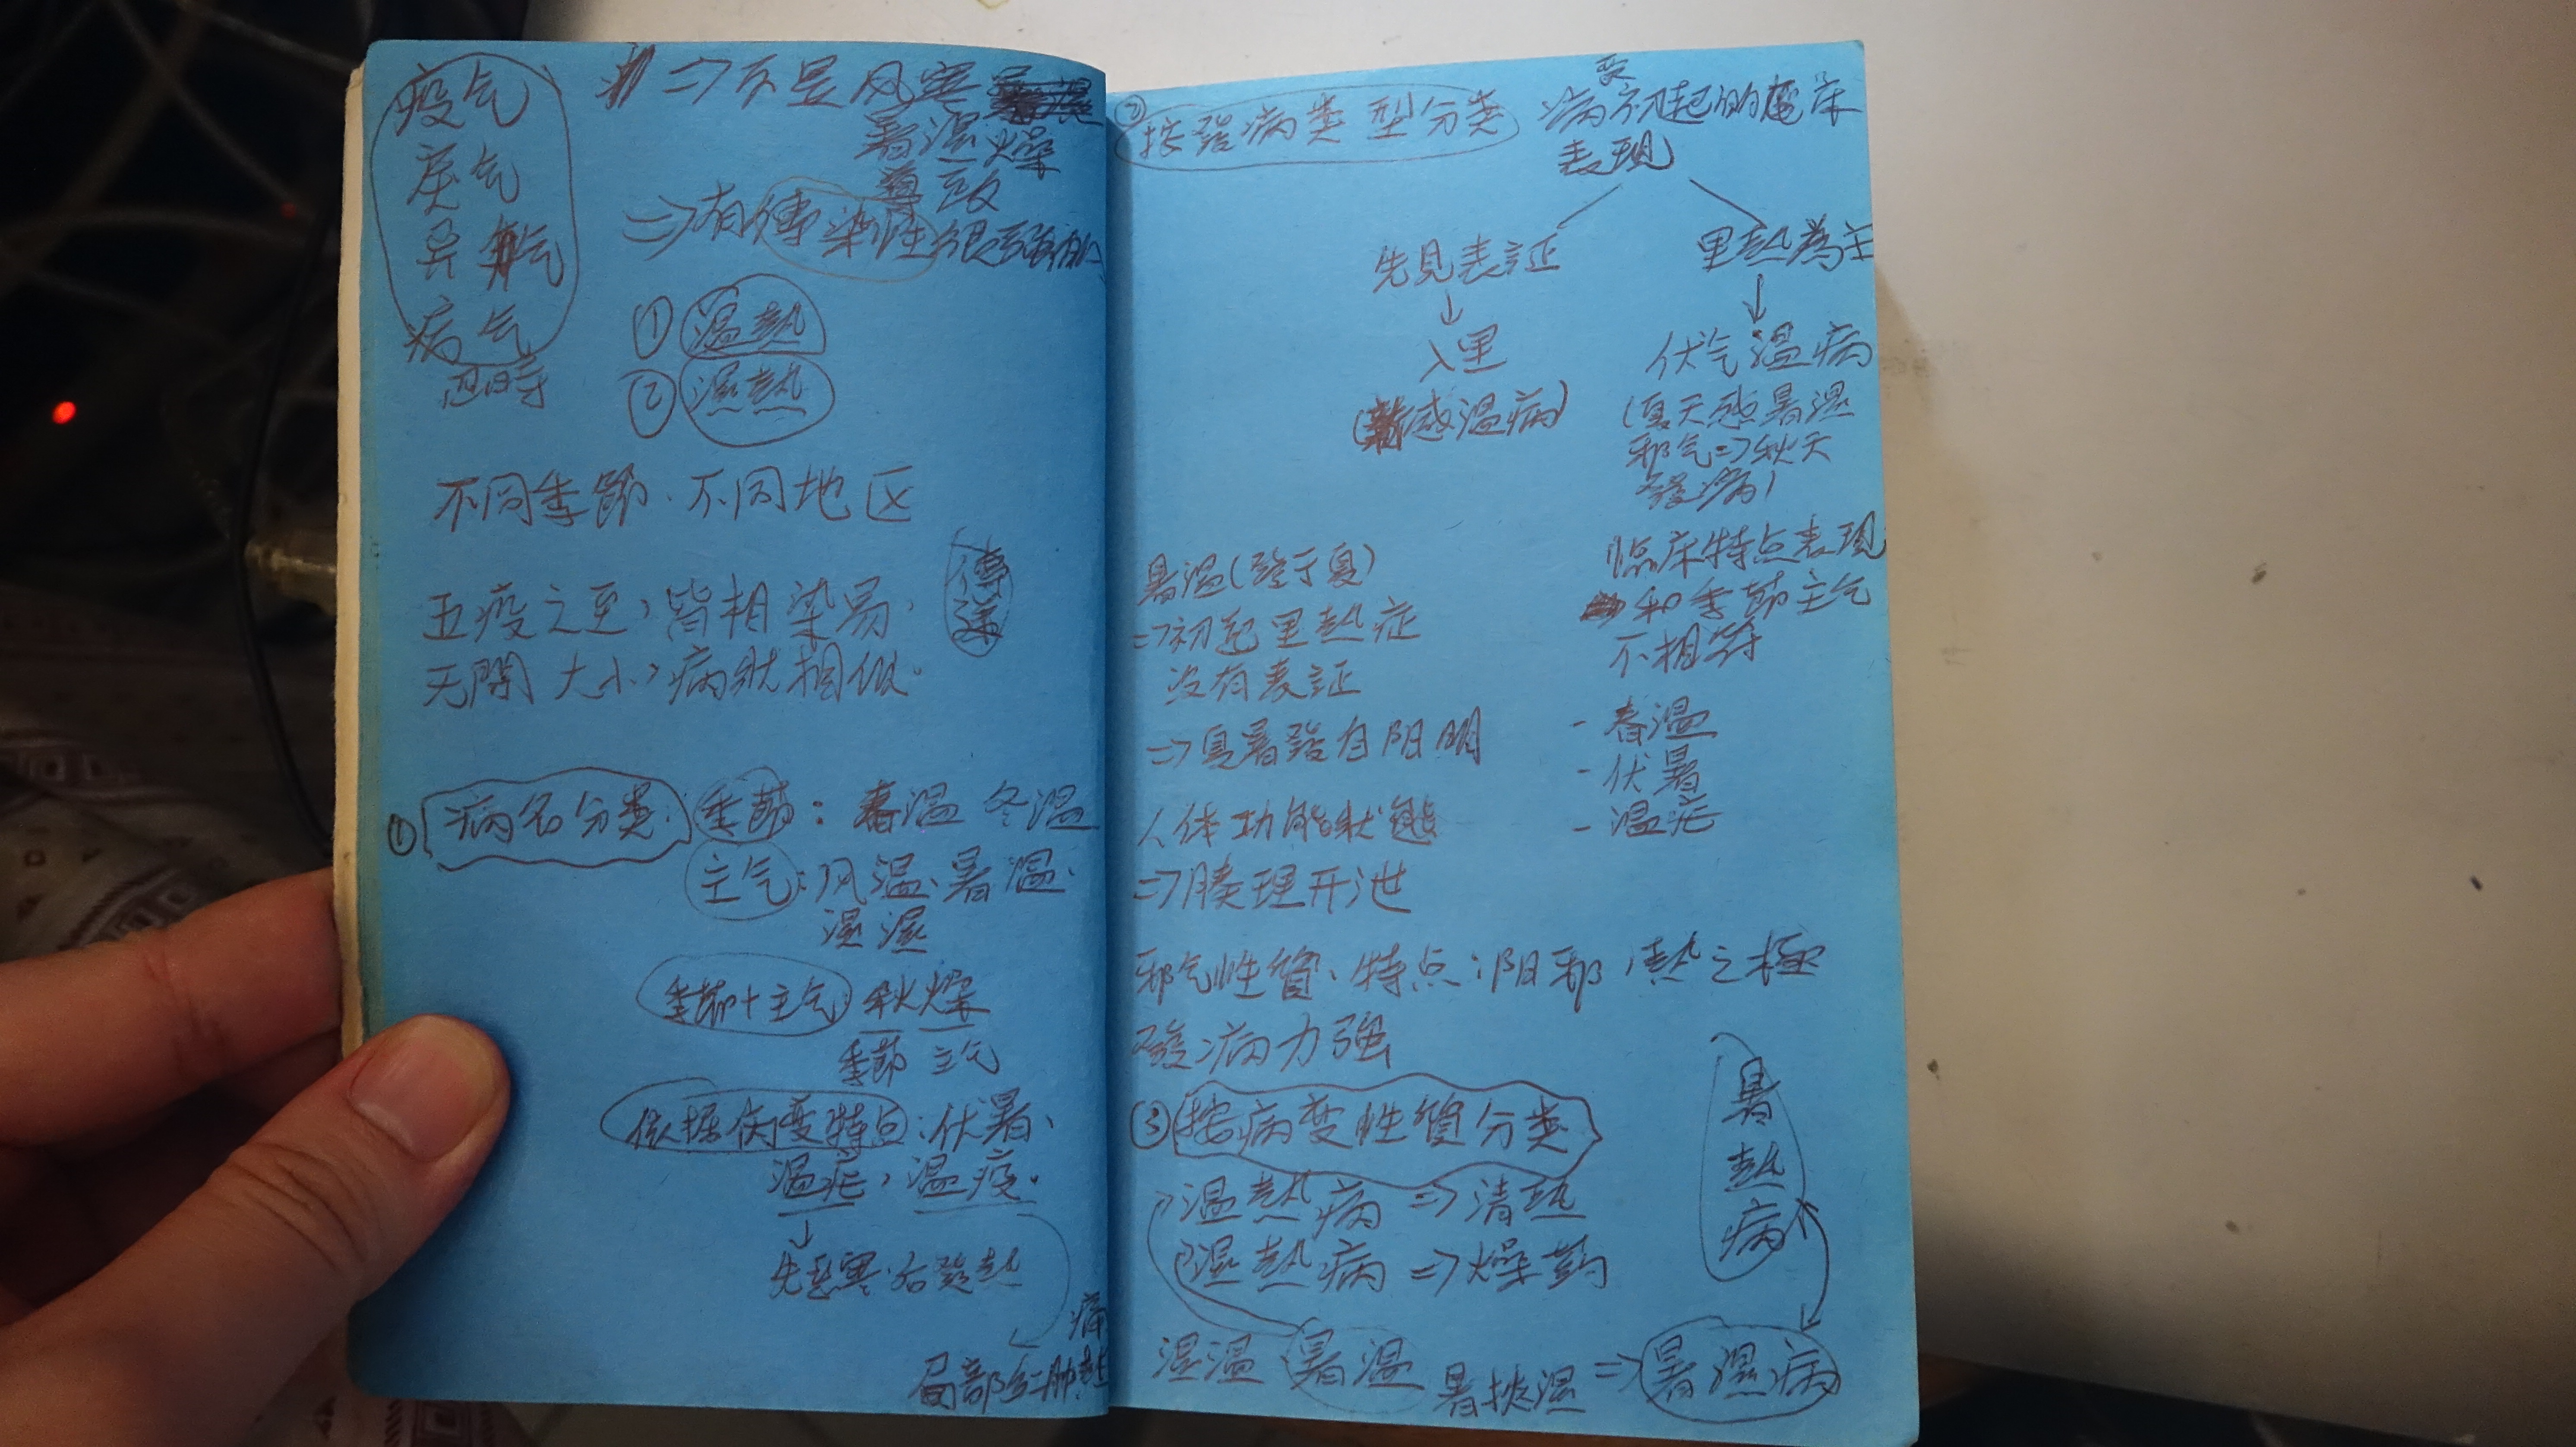 疫气
戾气
异气
病气
⇒不是风寒
暑湿燥
⇒有傳染性很强的
① 温熱
② 湿熱
不同季節.不同地区
五疫之至,皆相染易,
傳染
无問大小,病狀相似.
① 病名分类: 季節: 春温 冬温
主气: 风温、暑温、
湿温
季節+主气: 秋燥
季節 主气
依据病变特点: 伏暑、
温疟, 温疫.
↓
先恶寒.后發熱
局部红肿熱
痛
② 按發病类型分类
病初起的臨床
表現
先見表証
↓
入里
(新感温病)
里熱為主
↓
伏气温病
(夏天感暑湿
邪气⇒秋天
發病)
临床特点表現
和季節主气
不相符
- 春温
- 伏暑
- 温疟
暑温(發于夏)
⇒初起里熱症
没有表証
⇒夏暑發自阳明
人体功能狀態
⇒腠理开泄
邪气性質、特点: 阳邪, 熱之極
發病力強
③ 按病变性質分类
温熱病 ⇒ 清热
湿熱病 ⇒ 燥药
暑熱病
湿温 暑温 暑挾湿 ⇒ 暑湿病